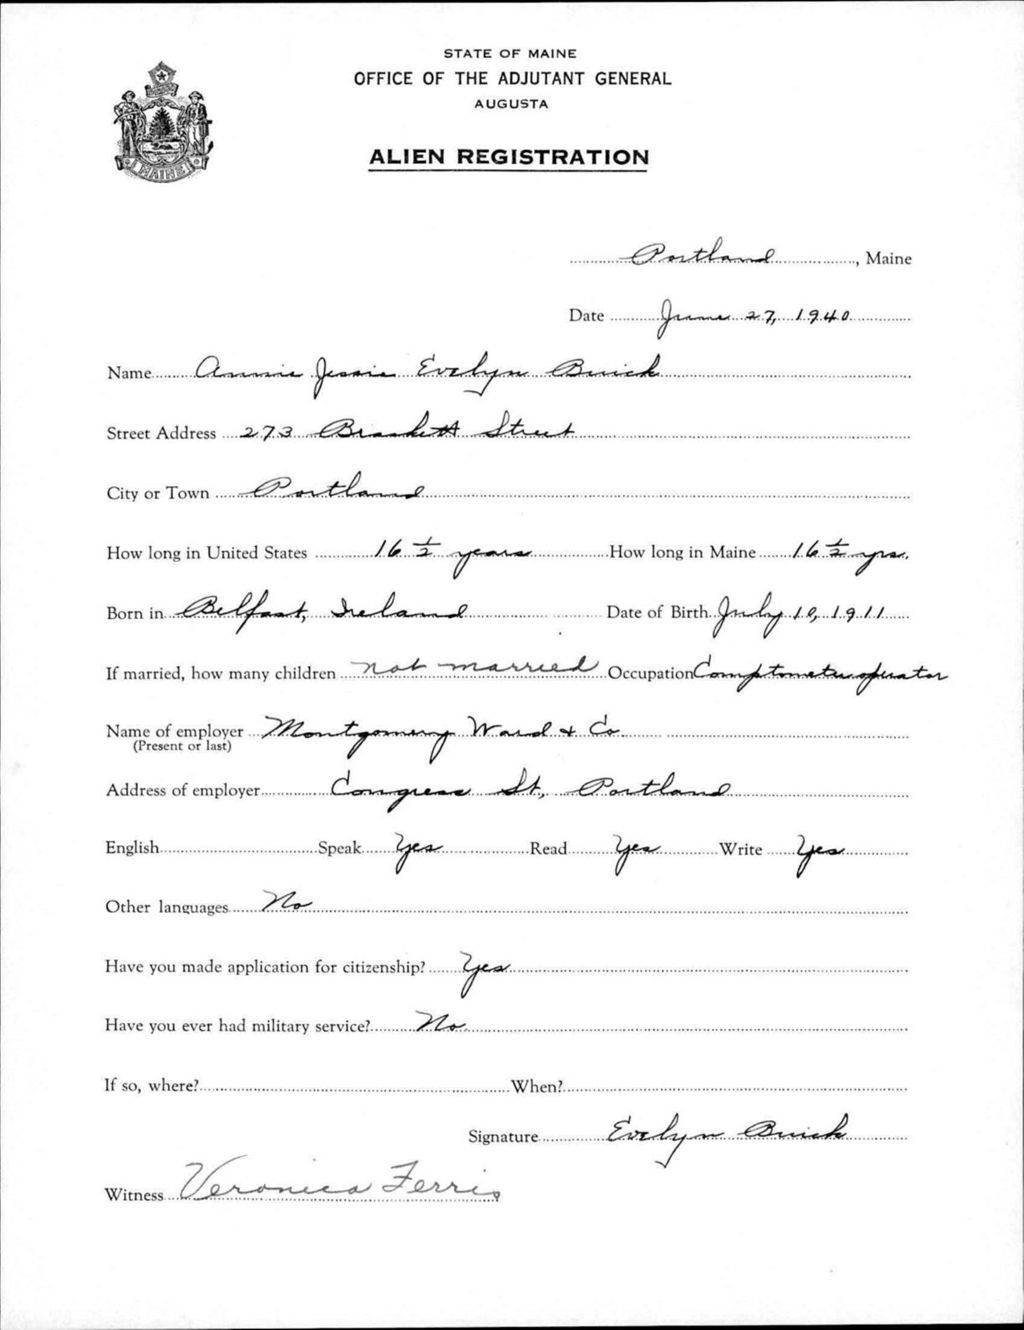 STATE OF MAINE
OFFICE OF THE ADJUTANT GENERAL
AUGUSTA
ALIEN REGISTRATION
MAINE
Portland, Maine
Date June 27, 1940
Name Annie Jessie Evelyn Buick
Street Address 273 Brackett Street
City or Town Portland
How long in United States 16 1/2 years How long in Maine 16 1/2 yrs.
Born in Belfast, Ireland Date of Birth July 10, 1911
If married, how many children not married Occupation Comptometer operator
Name of employer Montgomery Ward & Co
(Present or last)
Address of employer Congress St, Portland
English Speak Yes Read Yes Write Yes
Other languages No
Have you made application for citizenship? Yes
Have you ever had military service? No
If so, where? When?
Signature Evelyn Buick
Witness Veronica Ferris